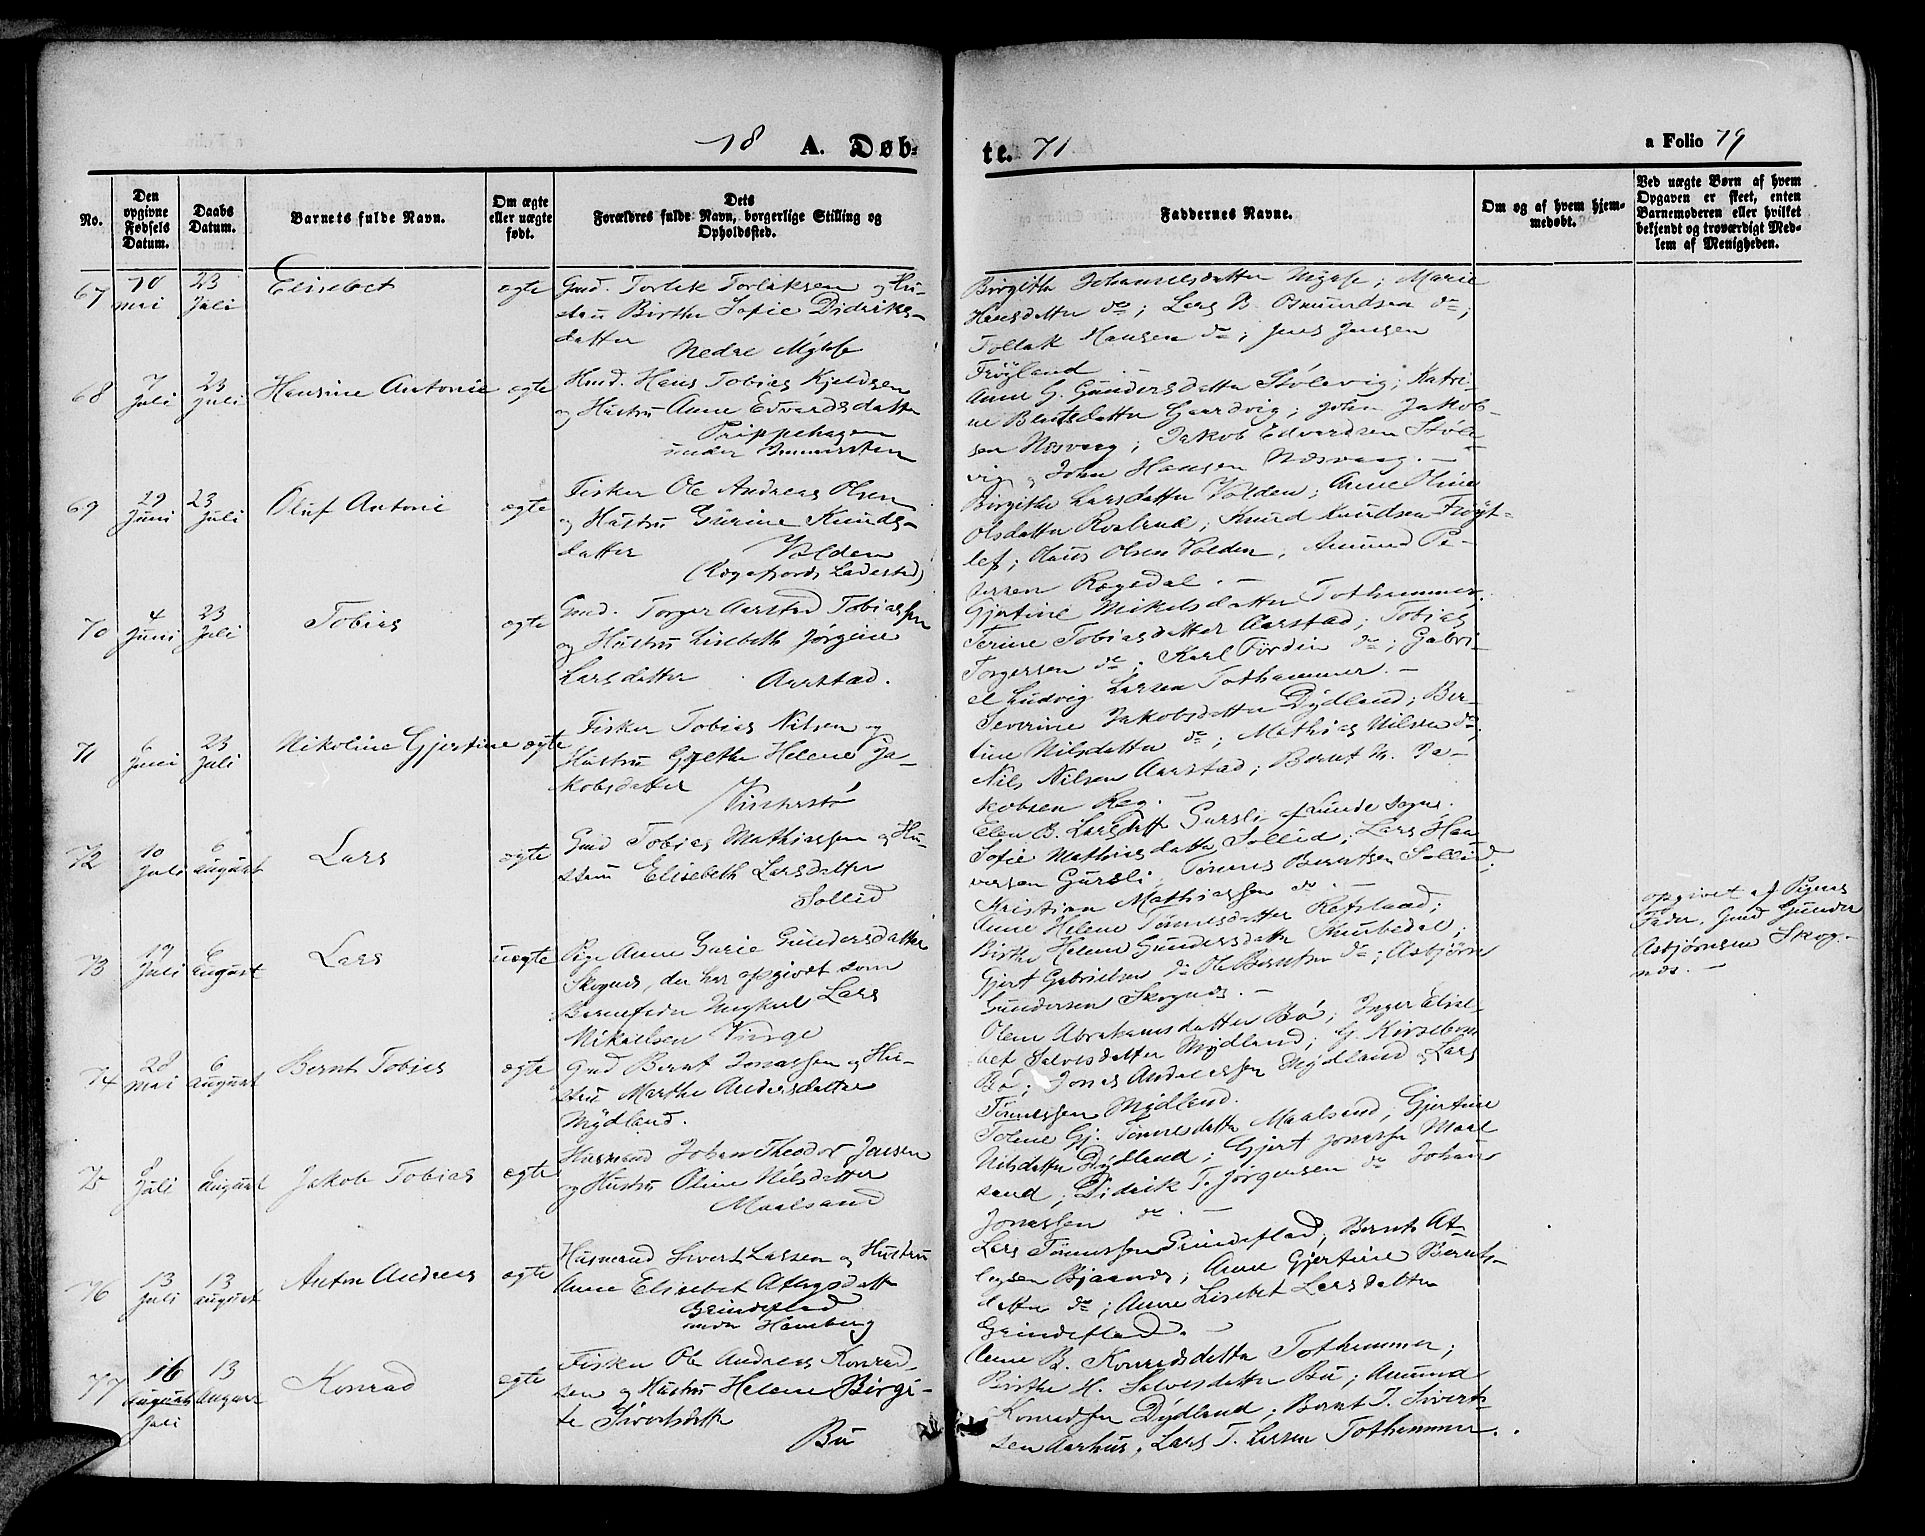 18 A. Døb-
te. 71
a Folio 79
No.
Den opgivne Fødsels Datum.
Daabs Datum.
Barnets fulde Navn.
Om ægte eller uægte født.
Dets Forældres fulde Navn, borgerlige Stilling og Opholdssted.
Faddernes Navne.
Om og af hvem hjem-
medøbt.
Ved uægte Børn af hvem
Opgaven er skeet, enten
Barnemoderen eller hvilket
bekjendt og troværdigt Med-
lem af Menigheden.
67
10 mai
23 Juli
Elisebet
ægte
Gmd. Torlak Torlaksen og Hu-
stru Birthe Sofie Didriks-
datter
Nedre Mysse
Birgitha Johannesdatter Mysse; Marie
Hansdatter do; Lars B. Osmundsen do;
Tollak Hansen do; Jens Jensen
Frøyland.
68
7 Juli
23 Juli
Hansine Antonie
ægte
Hmd. Hans Tobias Kjeldsen
og Hustru Anne Edvardsdatter
Prippehagen
under Immersten
Anne G. Gundersdatter Stølevig; Katri-
ne Bentsdatter Gaardvig; John Jakob-
sen Næsvaag; Jakob Edvardsen Støle-
vig, John Hansen Næsvaag. —
69
29 Juni
23 Juli
Oluf Antoni
ægte
Fisker Ole Andreas Olsen
og Hustru Gurine Knuds-
datter Valden
(Rægefjords Ladested)
Birgithe Larsdatter Volden; Anne Oline
Olsdatter; Knud Knudsen Frøyt-
lef; Olaus Olsen Volden; Amund Pe-
dersen Rægedal. —
70
4 Juni
23 Juli
Tobias
ægte
Gmd. Torger Aarstad Tobiassen
og Hustru Lisebeth Jørgine
Larsdatter Aarstad.
Gjertine Mikelsdatter Tothammer;
Terine Tobiasdatter Aarstad; Tobias
Torgersen do; Karl Fordin do; Gabri-
el Ludvig Larsen Tothammer. —
71
6 Juni
23 Juli
Nikoline Gjertine
ægte
Fisker Tobias Nilsen og
Hustru Gjethe Helene Ja-
kobsdatter
Vinterstø
Severine Jakobsdatter Dydland; Ber-
tine Nilsdatter do; Mathias Nilsen do;
Nils Nilsen Aarstad; Bernt N. Ja-
kobsen Reg. —
72
10 Juli
6 August
Lars
ægte
Gmd Tobias Mathiassen og Hu-
stru Elisebeth Larsdatter
Sollid
Elen B. Larsdatter Gursli af Lunde Sogn;
Sofie Mathiasdatter Sollid; Lars Haa-
versen Gursli; Tønnes Berntsen Sollid;
Kristian Mathiassen do. —
73
19 Juli
6 August
Lars
uægte
Pige Anne Gurie Gundersdatter
Skognes, der har opgivet som
Barnefader Ungkarl Lars
Mikaelsen Vinge
Anne Helene Tønnesdatter Refsland;
Birthe Helene Gundersdatter Stubedal;
Gjert Gabrielsen do Ole Berntsen do; Asbjørn
Gundersen Skognes. —
opgivet af Pigens
Fader, Gmd Gunder
Asbjørnsen Skog-
nes. —
74
28 mai
6 August
Bernt Tobias
ægte
Gmd Bernt Jonassen og Hu-
stru Marthe Andersdatter
Mydland.
Olene Abrahamsdatter Bø; Inger Elise-
bet Salvesdatter Mydland; G. Kirsebom
Bø; Jonas Andreassen Mydland og Lars
Tønnessen Mydland.
75
8 Juli
6 August
Jakob Tobias
ægte
Husmand Johan Theodor Jonsen
og Hustru Oline Nilsdatter
Maalsand
Tolene Gj. Tønnesdatter Maalsand; Gjertine
Nilsdatter Dydland; Gjert Jonassen Maal
sand; Didrik T. Jørgensen do Johan
Jonassen do. —
76
13 Juli
13 August
Anton Andreas
ægte
Husmand Sivert Larsen og Hustru
Anne Elisebet Atlagsdatter
Grindeflad
under Hamberg
Lars Tønnessen Grindeflad; Bernt At-
lagsen Bjaanes; Anne Gjertine Bernts-
datter do; Anne Lisebet Larsdatter
Grindeflad. —
77
16 August Juli
13 August
Konrad
ægte
Fisker Ole Andreas Konrad-
sen og Hustru Helene Birgi-
te Sivertsdatter
Bu
Anne B. Konradsdatter Tothammer;
Birthe H. Salvesdatter Bu; Amund
Konradsen Dydland; Bernt T. Sivert-
sen Aarhus; Lars T. Larsen Tothammer.